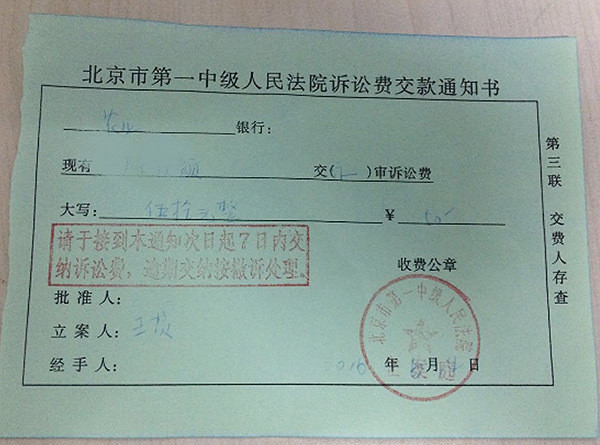 北京市第一中级人民法院诉讼费交款通知书
银行:
现有 交( )审诉讼费
大写: 伍拾元整 ¥ 50-
请于接到本通知次日起7日内交
纳诉讼费,逾期交纳按撤诉处理。
收费公章
批准人:
立案人: 王
经手人:
2016 年 月 日
北京市第一中级人民法院
立案庭
第三联 交费人存查